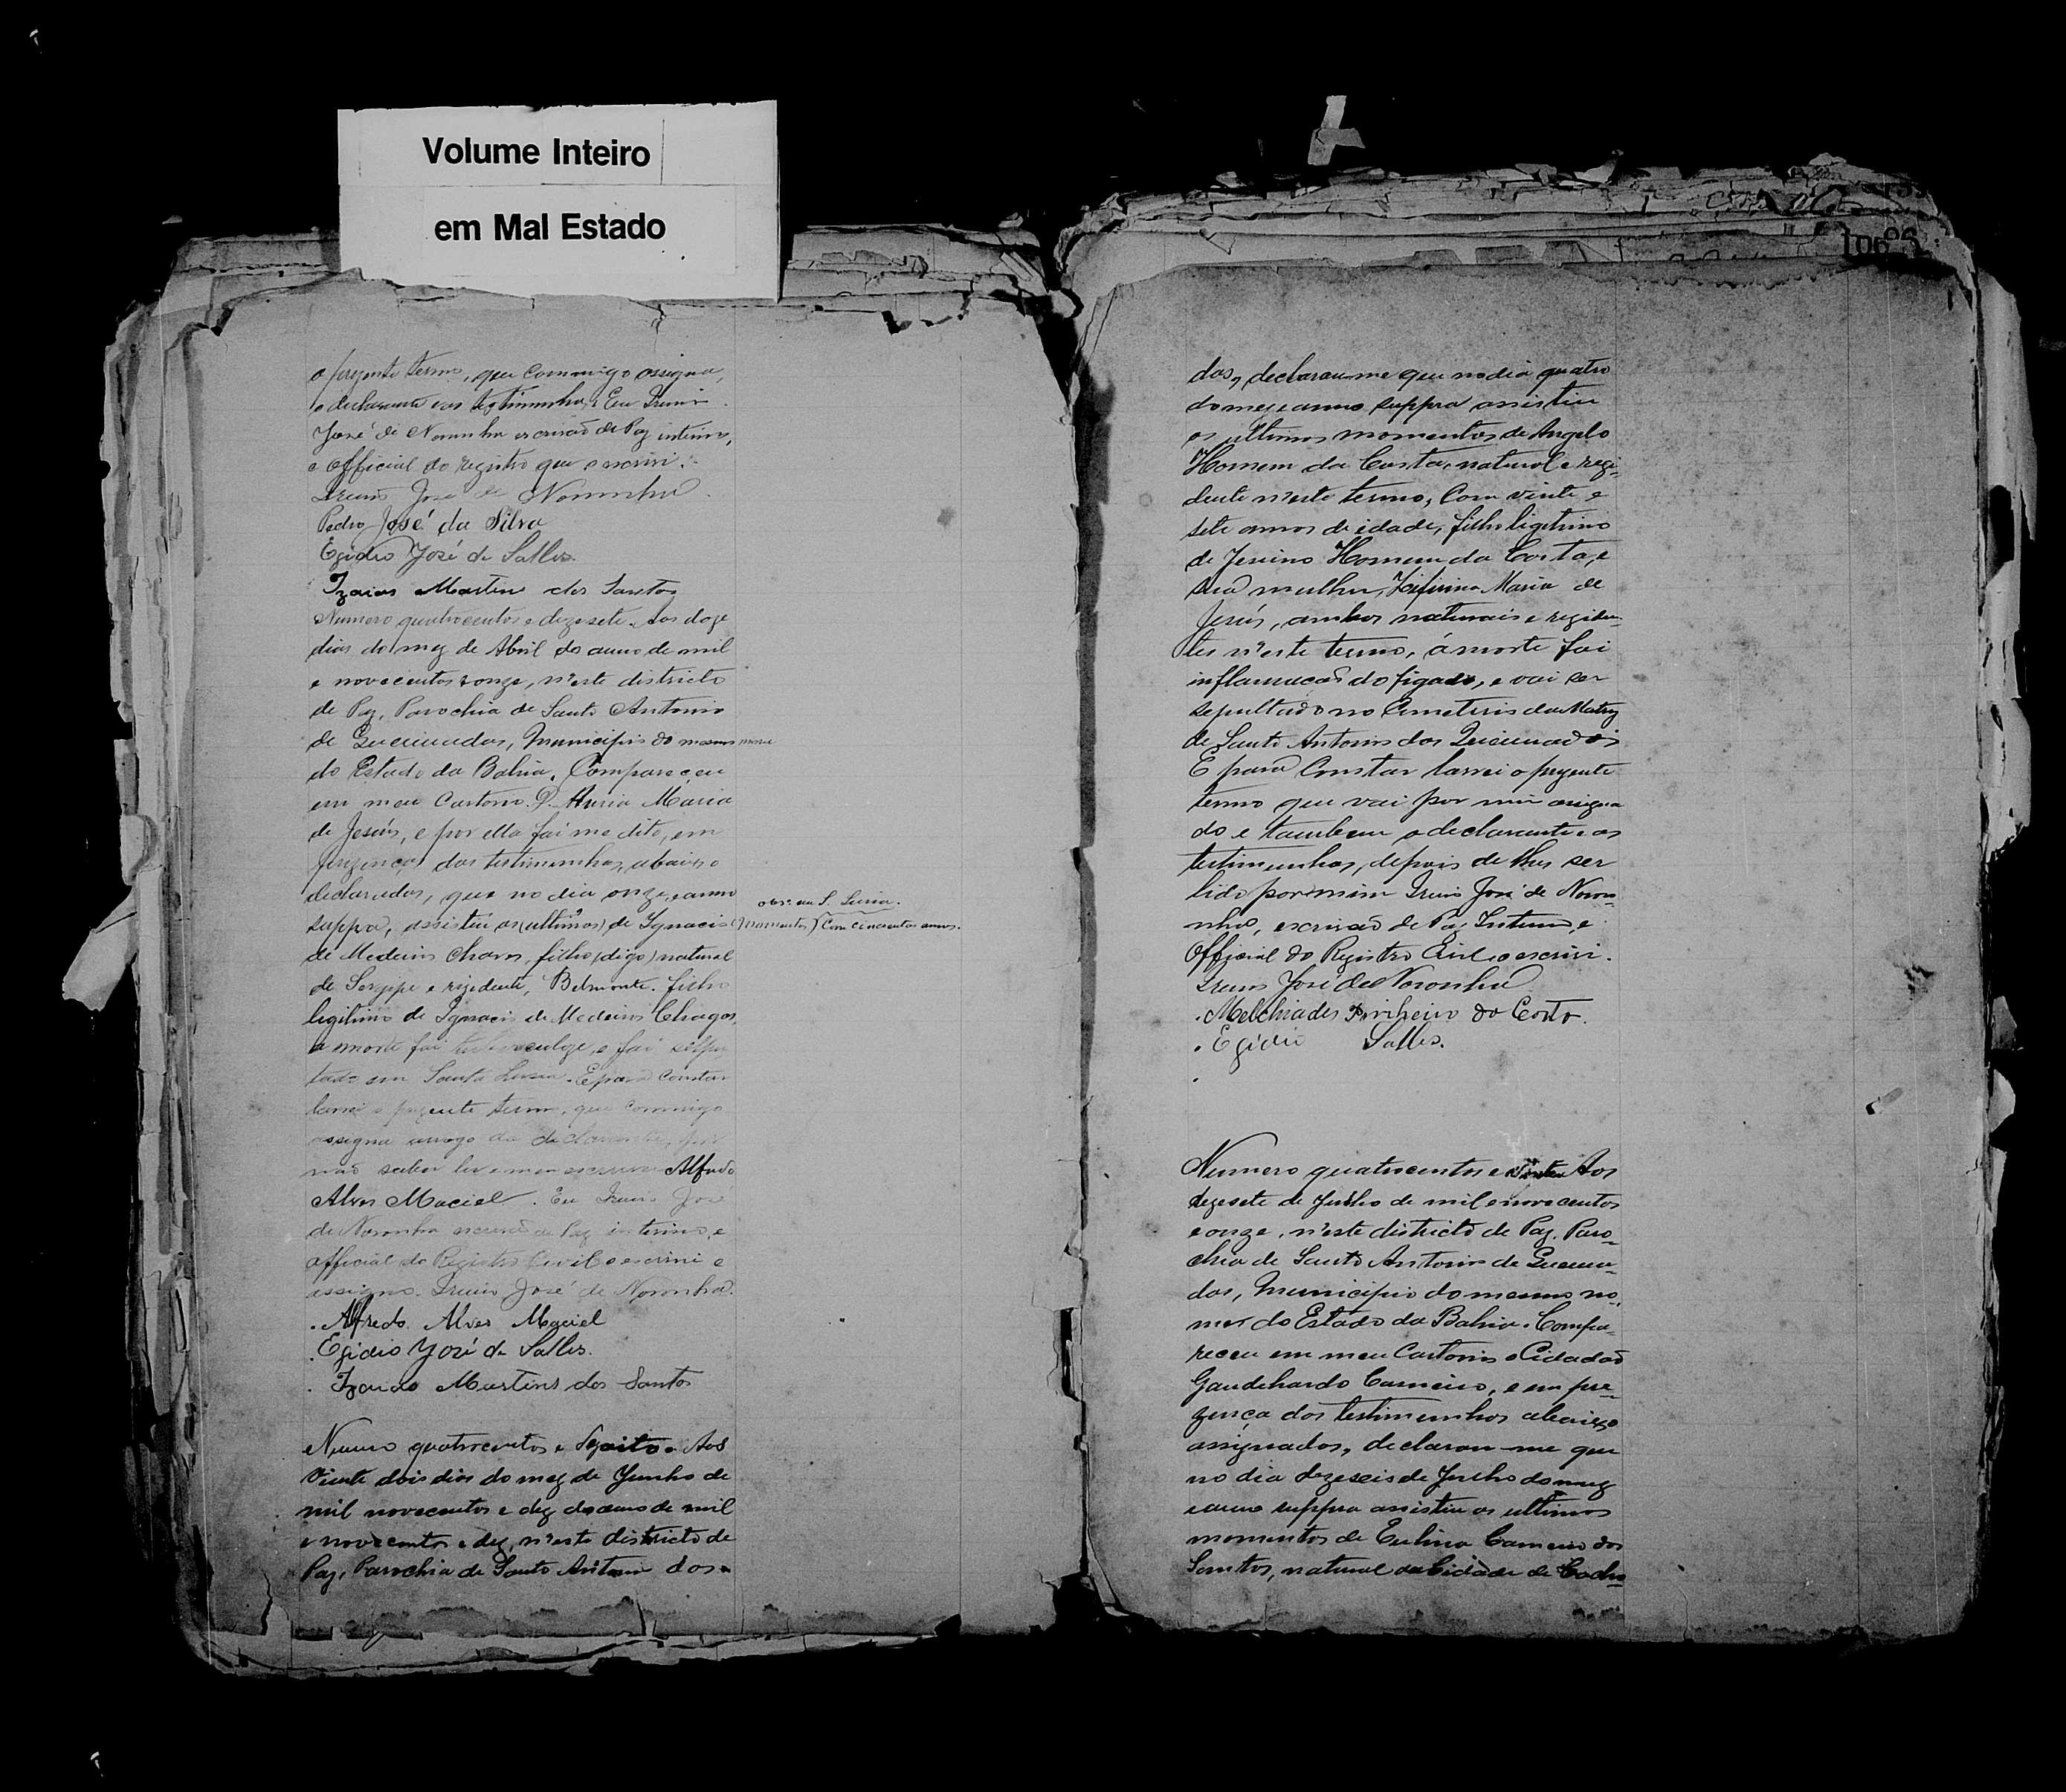 Volume Inteiro
em Mal Estado
o prezente termo, que commigo assigna,
o declarante e as testimunhas. Eu Irenio
José de Noronha escrivaõ de Paz interino,
e official do registro que o escrivi.
Irenio José de Noronha
Pedro José da Silva
Egidio José de Salles.
Izaias Martins dos Santos
Numero quatrocentos e dezesete. Aos doze
dias do mez de Abril do anno de mil
e novecentos e onze, n'este districto
de Paz, Parochia de Santo Antonio
de Queimadas, Municipio do mesmo nome
do Estado da Bahia, Compareceu
em meu Cartorio D. Maria
de Jesús, e por ella foi me dito, em
prezença das testimunhas, abaixo
declaradas, que no dia onze, e anno
suppra, assistiu os (ultimos) de Ignacio (momentos) com cincoenta annos.
de Medeiros Chaves, filho (digo) natural
de Sergipe e rezidente, Belmonte. filho
legitimo de Ignacio de Medeiros Chagas,
a morte foi e foi sepul
tado em Santa Luzia. E para constar
lavrei o prezente termo, que commigo
assigna arrogo da declarante, por
naõ saber ler e nem escrever Alfredo
Alves Maciel. Eu Irenio José
de Noronha escrivaõ de Paz interino, e
official do Registro Civil o escrivi e
assigno. Irenio José de Noronha.
Alfredo Alves Maciel
Egidio José de Salles.
Martins dos Santos
Numero quatrocentos e dezoito. Aos
Vinte dois dias do mez de Junho de
mil novecentos e dez do anno de mil
e novecentos e dez, n'este districto de
Paz, Parochia de Santo Antonio dos
das, declarou-me que no dia quatro
do mez e anno suppra assistiu
os ultimos momentos de Angelo
Homem da Costa, natural e rezi-
dente n'este termo, Com vinte e
sete annos de idade, filho ligitimo
de Homem da Costa, e
sua mulher, Zifirina Maria de
Jesús, ambos naturais e reziden-
tes n'este termo, á morte foi
inflamacaõ do figado, e vai ser
sepultado no Cemeterio da Matriz
de Santo Antonio das Queimadas
E para Constar lavrei o prezente
termo que vai por mim assigna
do e tambem o declarante e as
testimunhas, depois de lhes ser
lido por mim Irenio José de Noro-
nha, escrivaõ de Paz Interino, e
Official do Registro Civil o escrivi.
Irenio José de Noronha
Melchiades Pinheiro da Costa.
Egidio Salles.
Numero quatrocentos e vinte Aos
dezesete de Julho de mil e novecentos
e onze, n'este districto de Paz, Paro-
chia de Santo Antonio de Queima-
das, Municipio do mesmo no-
me do Estado da Bahia. Compa-
receu em meu Cartorio o Cidadaõ
Carneiro, e em pre-
zença das testimunhas abaixo
assignados, declarou-me que
no dia dezeseis de Julho do mez
e anno suppra assistiu os ultimos
momentos de Eulina Carneiro dos
Santos, natural da Cidade de